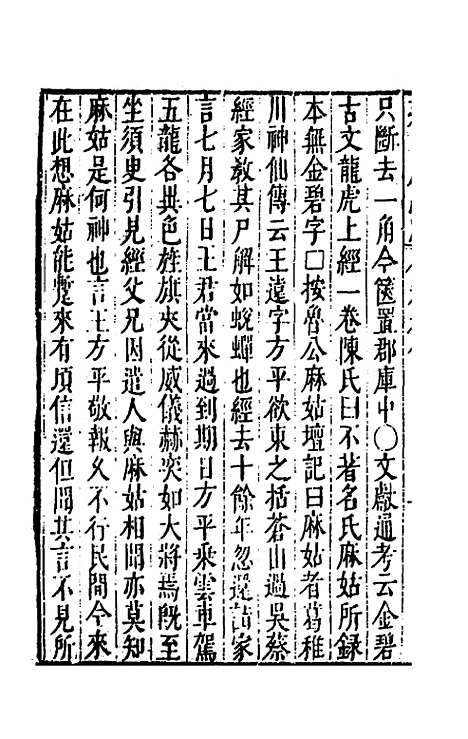 只斷去一角今篋置郡庫中〇文獻通考云金碧
古文龍虎上經一卷陳氏曰不著名氏麻姑所録
本無金碧字囗按魯公麻姑壇記曰麻姑者葛稚
川神仙傳云王遠字方平欲東之括蒼山過吳蔡
經家教其尸解如蛻蟬也經去十餘年忽還語家
言七月七日王君當來過到期日方平乘雲車駕
五龍各異色旌旗夾從威儀赫奕如大將焉旣至
坐須臾引見經父兄因遣人與麻姑相聞亦莫知
麻姑是何神也言王方平敬報久不行民間今來
在此想麻姑能蹔來有頃信還但聞其言不見所